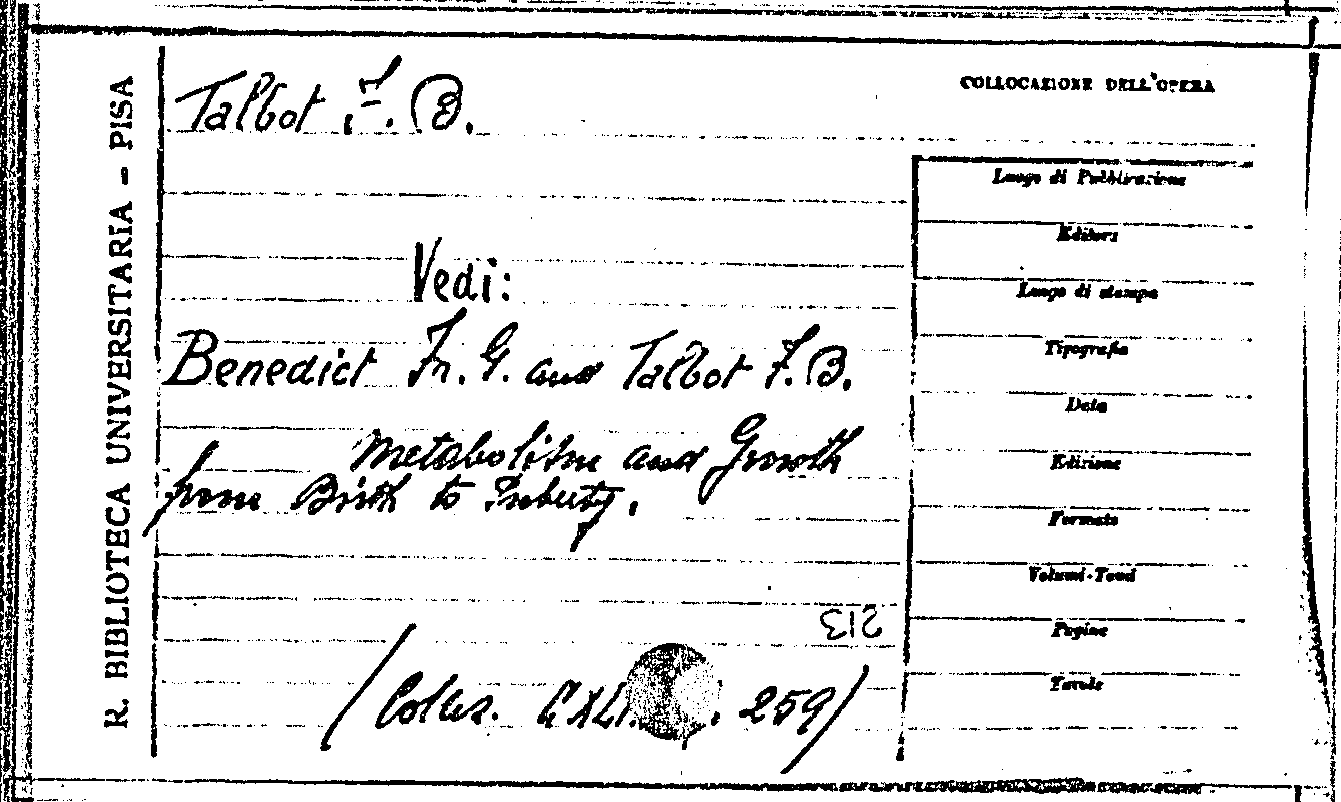 R. BIBLIOTECA UNIVERSITARIA - PISA
Talbot F. B.
COLLOCAZIONE DELL'OPERA
Luogo di Pubblicazione
Editori
Luogo di stampa
Tipografia
Data
Edizione
Formato
Volumi-Tomi
Pagine
Tavole
Vedi:
Benedict Fr. G. and Talbot F. B.
Metabolism and Growth
from Birth to Puberty.
213
(Collez. 259)